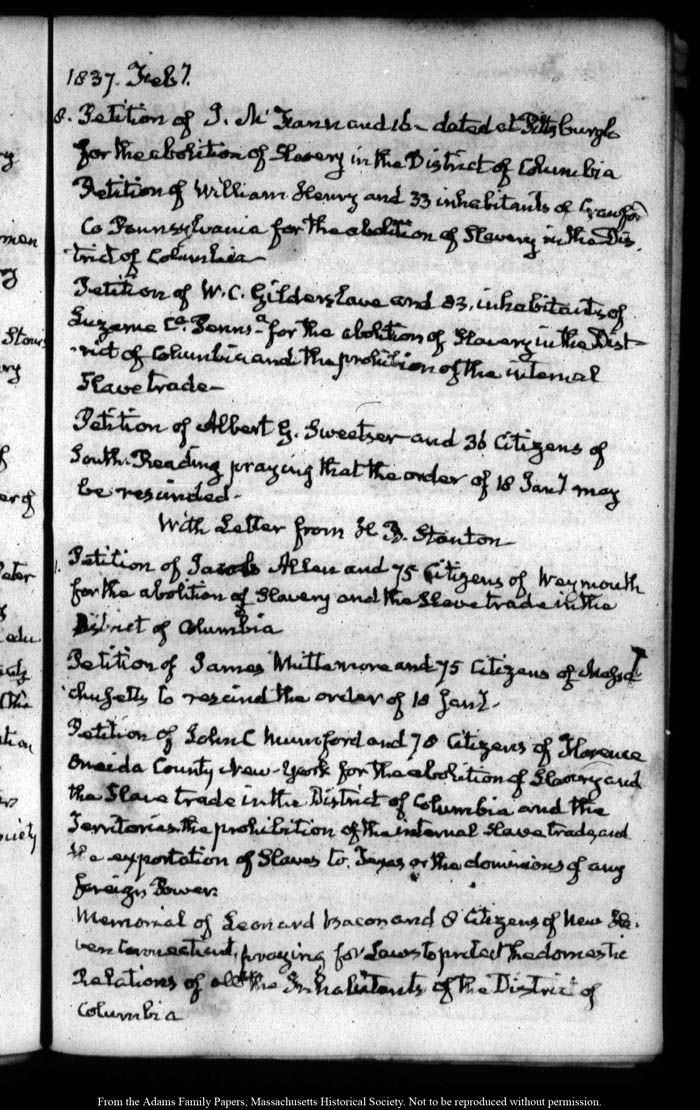 1837. Feb 7.
8. Petition of J. M and 16 - dated at Pittsburgh
for the abolition of Slavery in the District of Columbia
Petition of William Henry and 33 inhabitants of Crawford
Co Pennsylvania for the abolition of Slavery in the Dis.
trict of Columbia—
Petition of W. C. Gildersleave and 83. inhabitants of
Luzerne Co. Penns- for the abolition of Slavery in the Dist
rict of Columbia and the prohibition of the internal
Slave trade—
Petition of Albert G. Sweetser and 36 Citizens of
South-Reading praying that the order of 18 Jany may
be rescinded-
With Letter from H B. Stanton
1. Petition of Jacob Allen and 75 Citizens of Weymouth
for the abolition of Slavery and the Slave trade in the
District of Columbia
Petition of James Whittemore and 75 Citizens of Massa
chusetts to rescind the order of 18 Jany.
Petition of John C Mumford and 78 Citizens of Florence
Oneida County New-York for the abolition of Slavery and
the Slave trade in the District of Columbia and the
Territories. the prohibition of the internal Slave trade, and
the exportation of Slaves to Texas or the dominions of any
foreign Power.
Memorial of Leonard Bacon and 8 Citizens of New Ha-
ven Connecticut, praying for Laws to protect the domestic
Relations of all the Inhabitants of the District of
Columbia
From the Adams Family Papers, Massachusetts Historical Society. Not to be reproduced without permission.